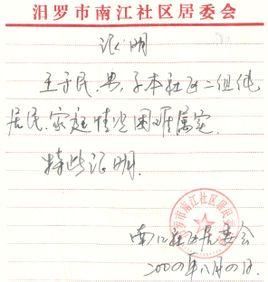 汨罗市南江社区居委会
证明
王子民,男,系本社区二组纯
居民,家庭情况困难属实.
特此证明.
南江社区居委会